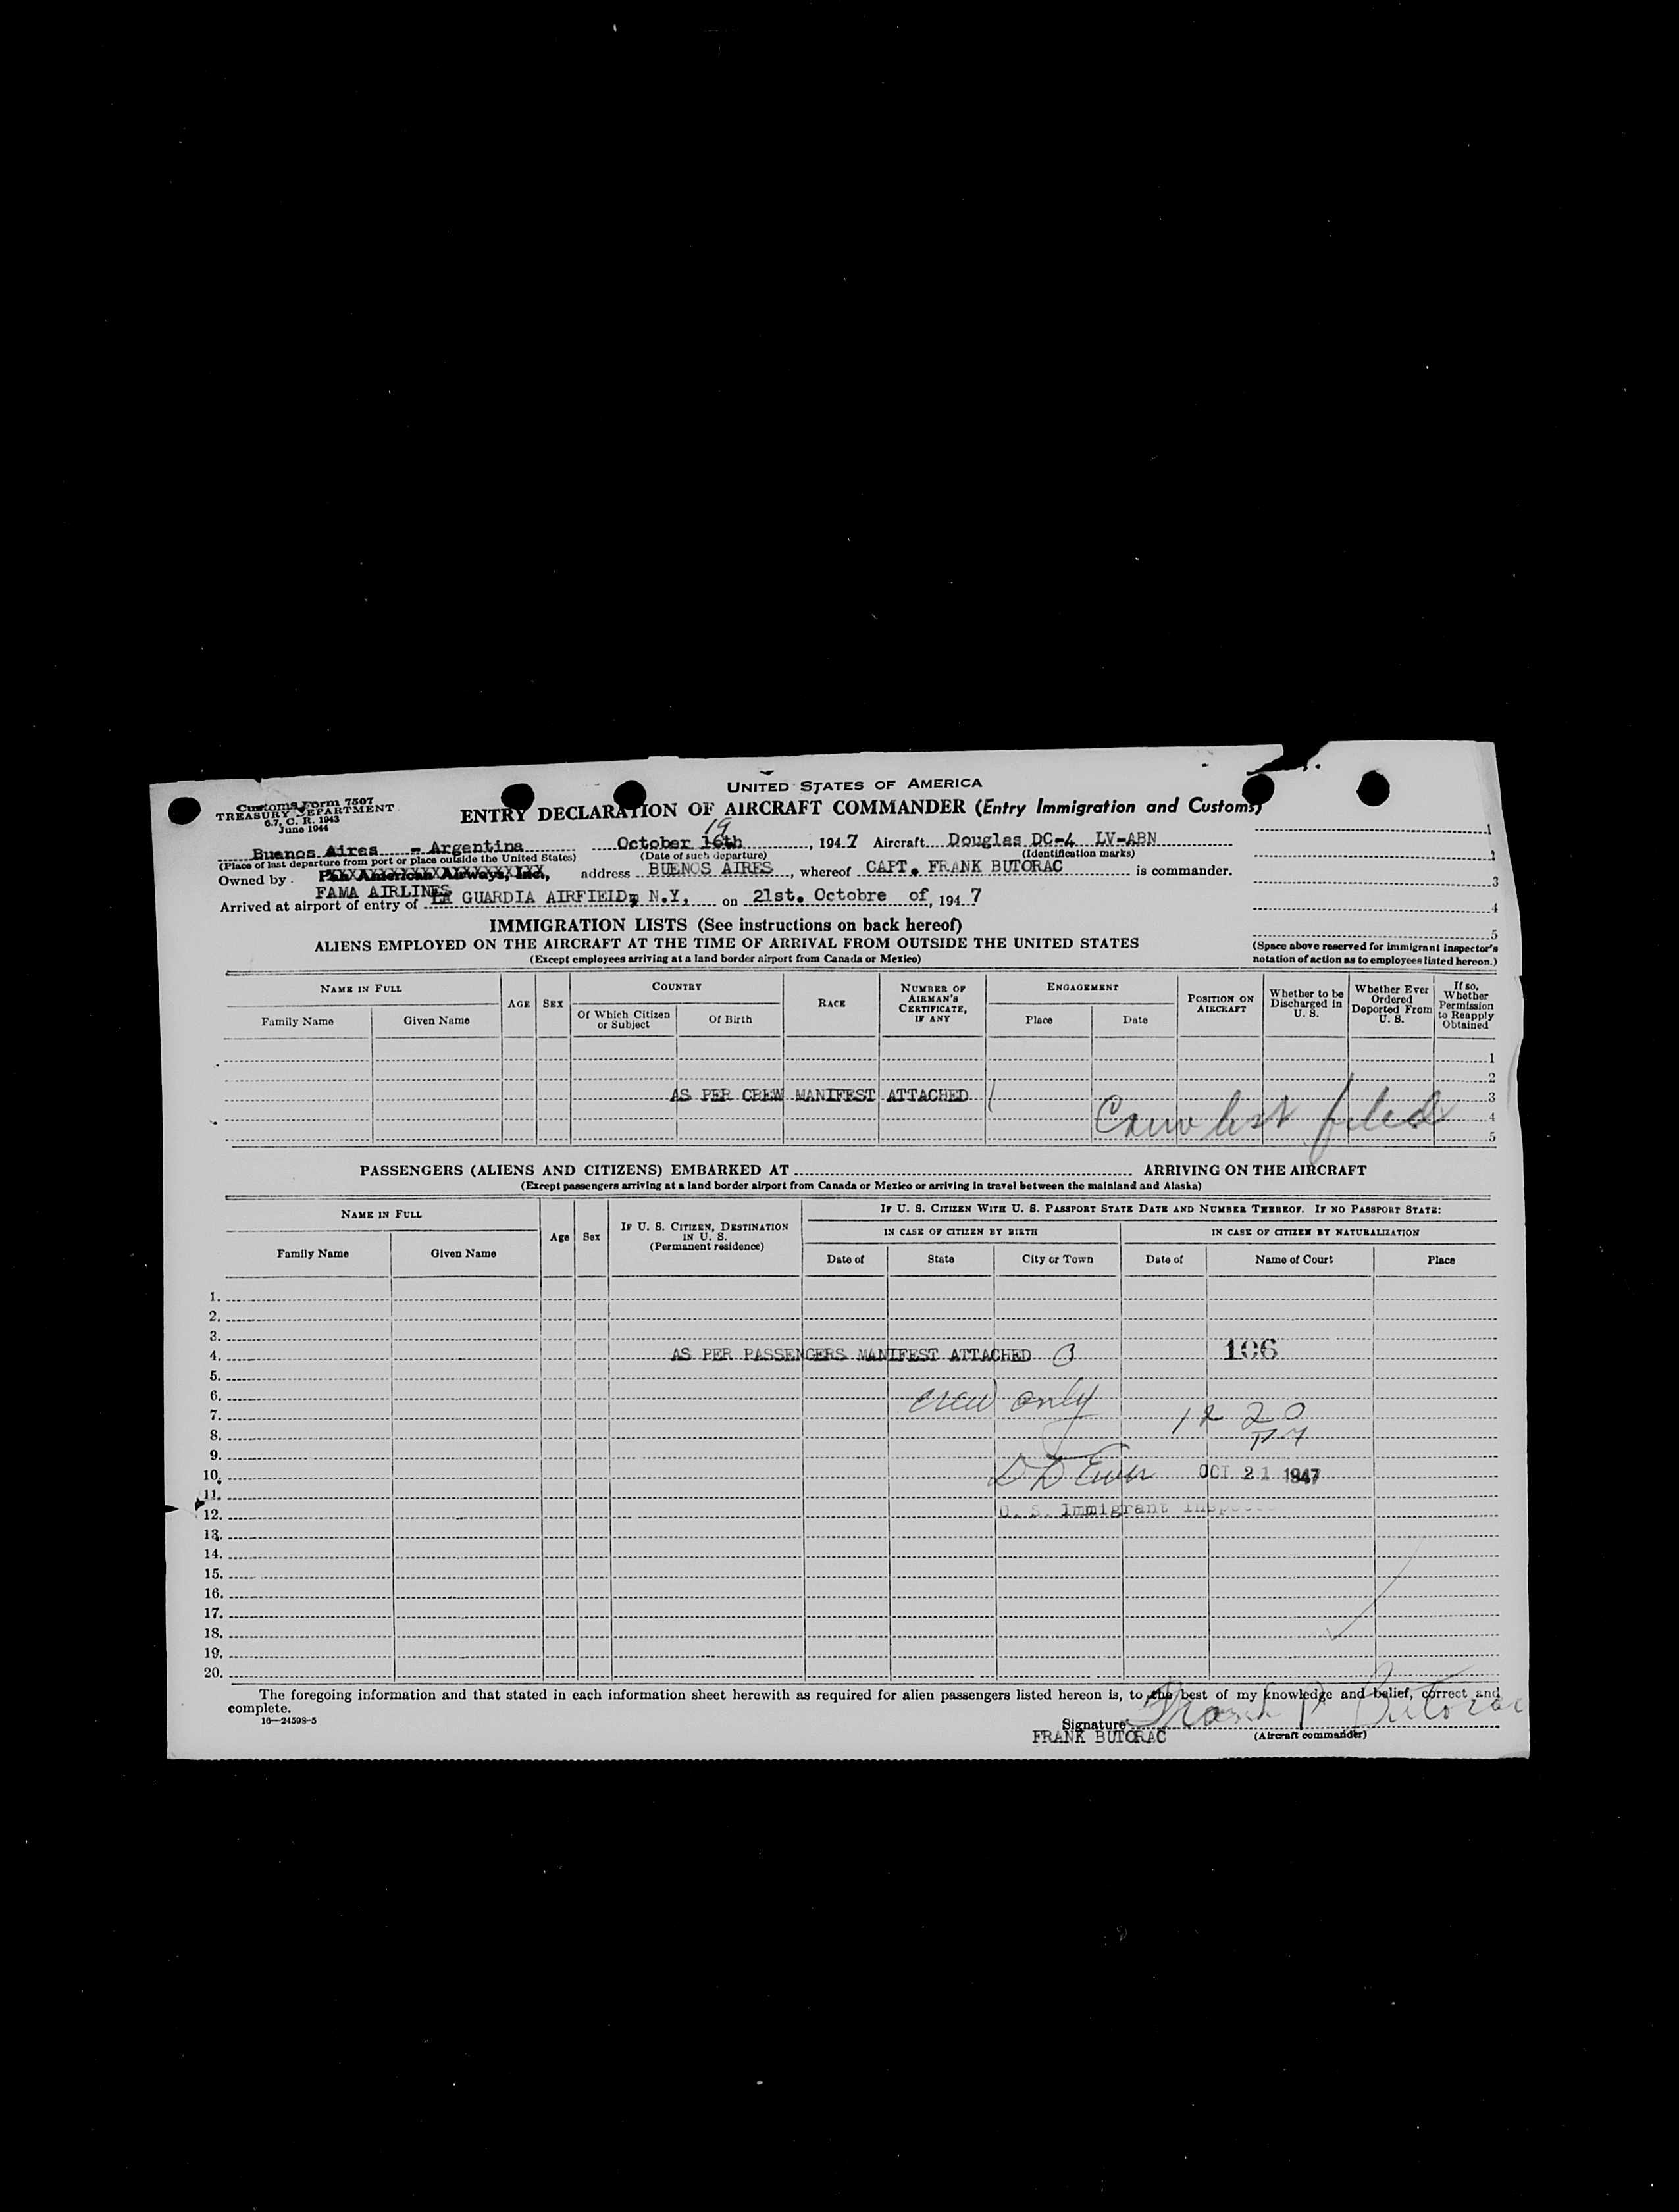 UNITED STATES OF AMERICA
Customs Form 7507
TREASURY DEPARTMENT
6.7, C. R. 1943
June 1944
ENTRY DECLARATION OF AIRCRAFT COMMANDER (Entry Immigration and Customs)
19
Buenos Aires - Argentina October 16th, 1947 Aircraft Douglas DC-4 LV-ABN
(Place of last departure from port or place outside the United States) (Date of such departure) (Identification marks)
Owned by Pan American Airways, Inc., address BUENOS AIRES, whereof CAPT. FRANK BUTORAC is commander.
FAMA AIRLINES
Arrived at airport of entry of LA GUARDIA AIRFIELD, N.Y, on 21st. Octobre of, 1947
1
2
3
4
5
(Space above reserved for immigrant inspector's
notation of action as to employees listed hereon.)
IMMIGRATION LISTS (See instructions on back hereof)
ALIENS EMPLOYED ON THE AIRCRAFT AT THE TIME OF ARRIVAL FROM OUTSIDE THE UNITED STATES
(Except employees arriving at a land border airport from Canada or Mexico)
NAME IN FULL
Family Name
Given Name
AGE
SEX
COUNTRY
Of Which Citizen
or Subject
Of Birth
RACE
NUMBER OF
AIRMAN'S
CERTIFICATE,
IF ANY
ENGAGEMENT
Place
Date
POSITION ON
AIRCRAFT
Whether to be
Discharged in
U. S.
Whether Ever
Ordered
Deported From
U. S.
If so,
Whether
Permission
to Reapply
Obtained
1
2
AS PER CREW MANIFEST ATTACHED 3
Crew list filed 4
5
PASSENGERS (ALIENS AND CITIZENS) EMBARKED AT ARRIVING ON THE AIRCRAFT
(Except passengers arriving at a land border airport from Canada or Mexico or arriving in travel between the mainland and Alaska)
NAME IN FULL
Family Name
Given Name
Age
Sex
IF U. S. CITIZEN, DESTINATION
IN U. S.
(Permanent residence)
IF U. S. CITIZEN WITH U. S. PASSPORT STATE DATE AND NUMBER THEREOF. IF NO PASSPORT STATE:
IN CASE OF CITIZEN BY BIRTH
IN CASE OF CITIZEN BY NATURALIZATION
Date of
State
City or Town
Date of
Name of Court
Place
1.
2.
3.
4. AS PER PASSENGERS MANIFEST ATTACHED 106
5.
6. crew only
7. 12 20
8. PM
9.
10. OCT 21 1947
11.
12. U. S. Immigrant Inspector
13.
14.
15.
16.
17.
18.
19.
20.
The foregoing information and that stated in each information sheet herewith as required for alien passengers listed hereon is, to the best of my knowledge and belief, correct and
complete.
16—24598-5
Signature Frank P Butorac
FRANK BUTORAC (Aircraft commander)